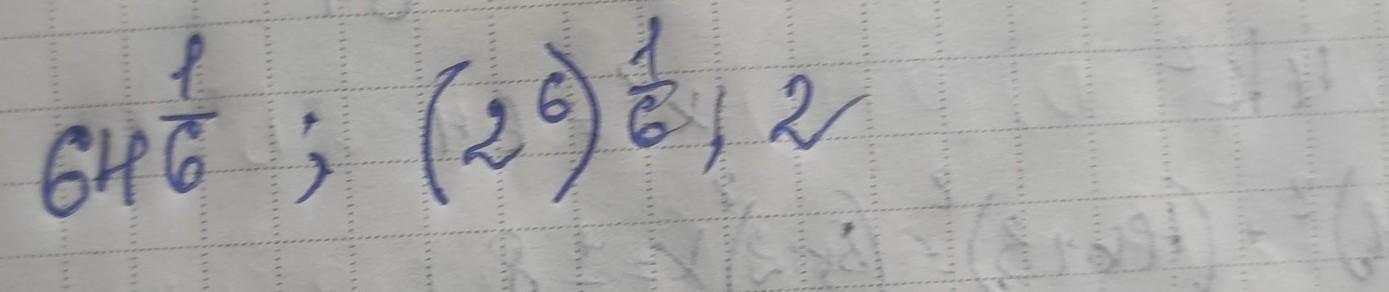 64^{\frac{1}{6}} ; (2^6)^{\frac{1}{6}} ; 2